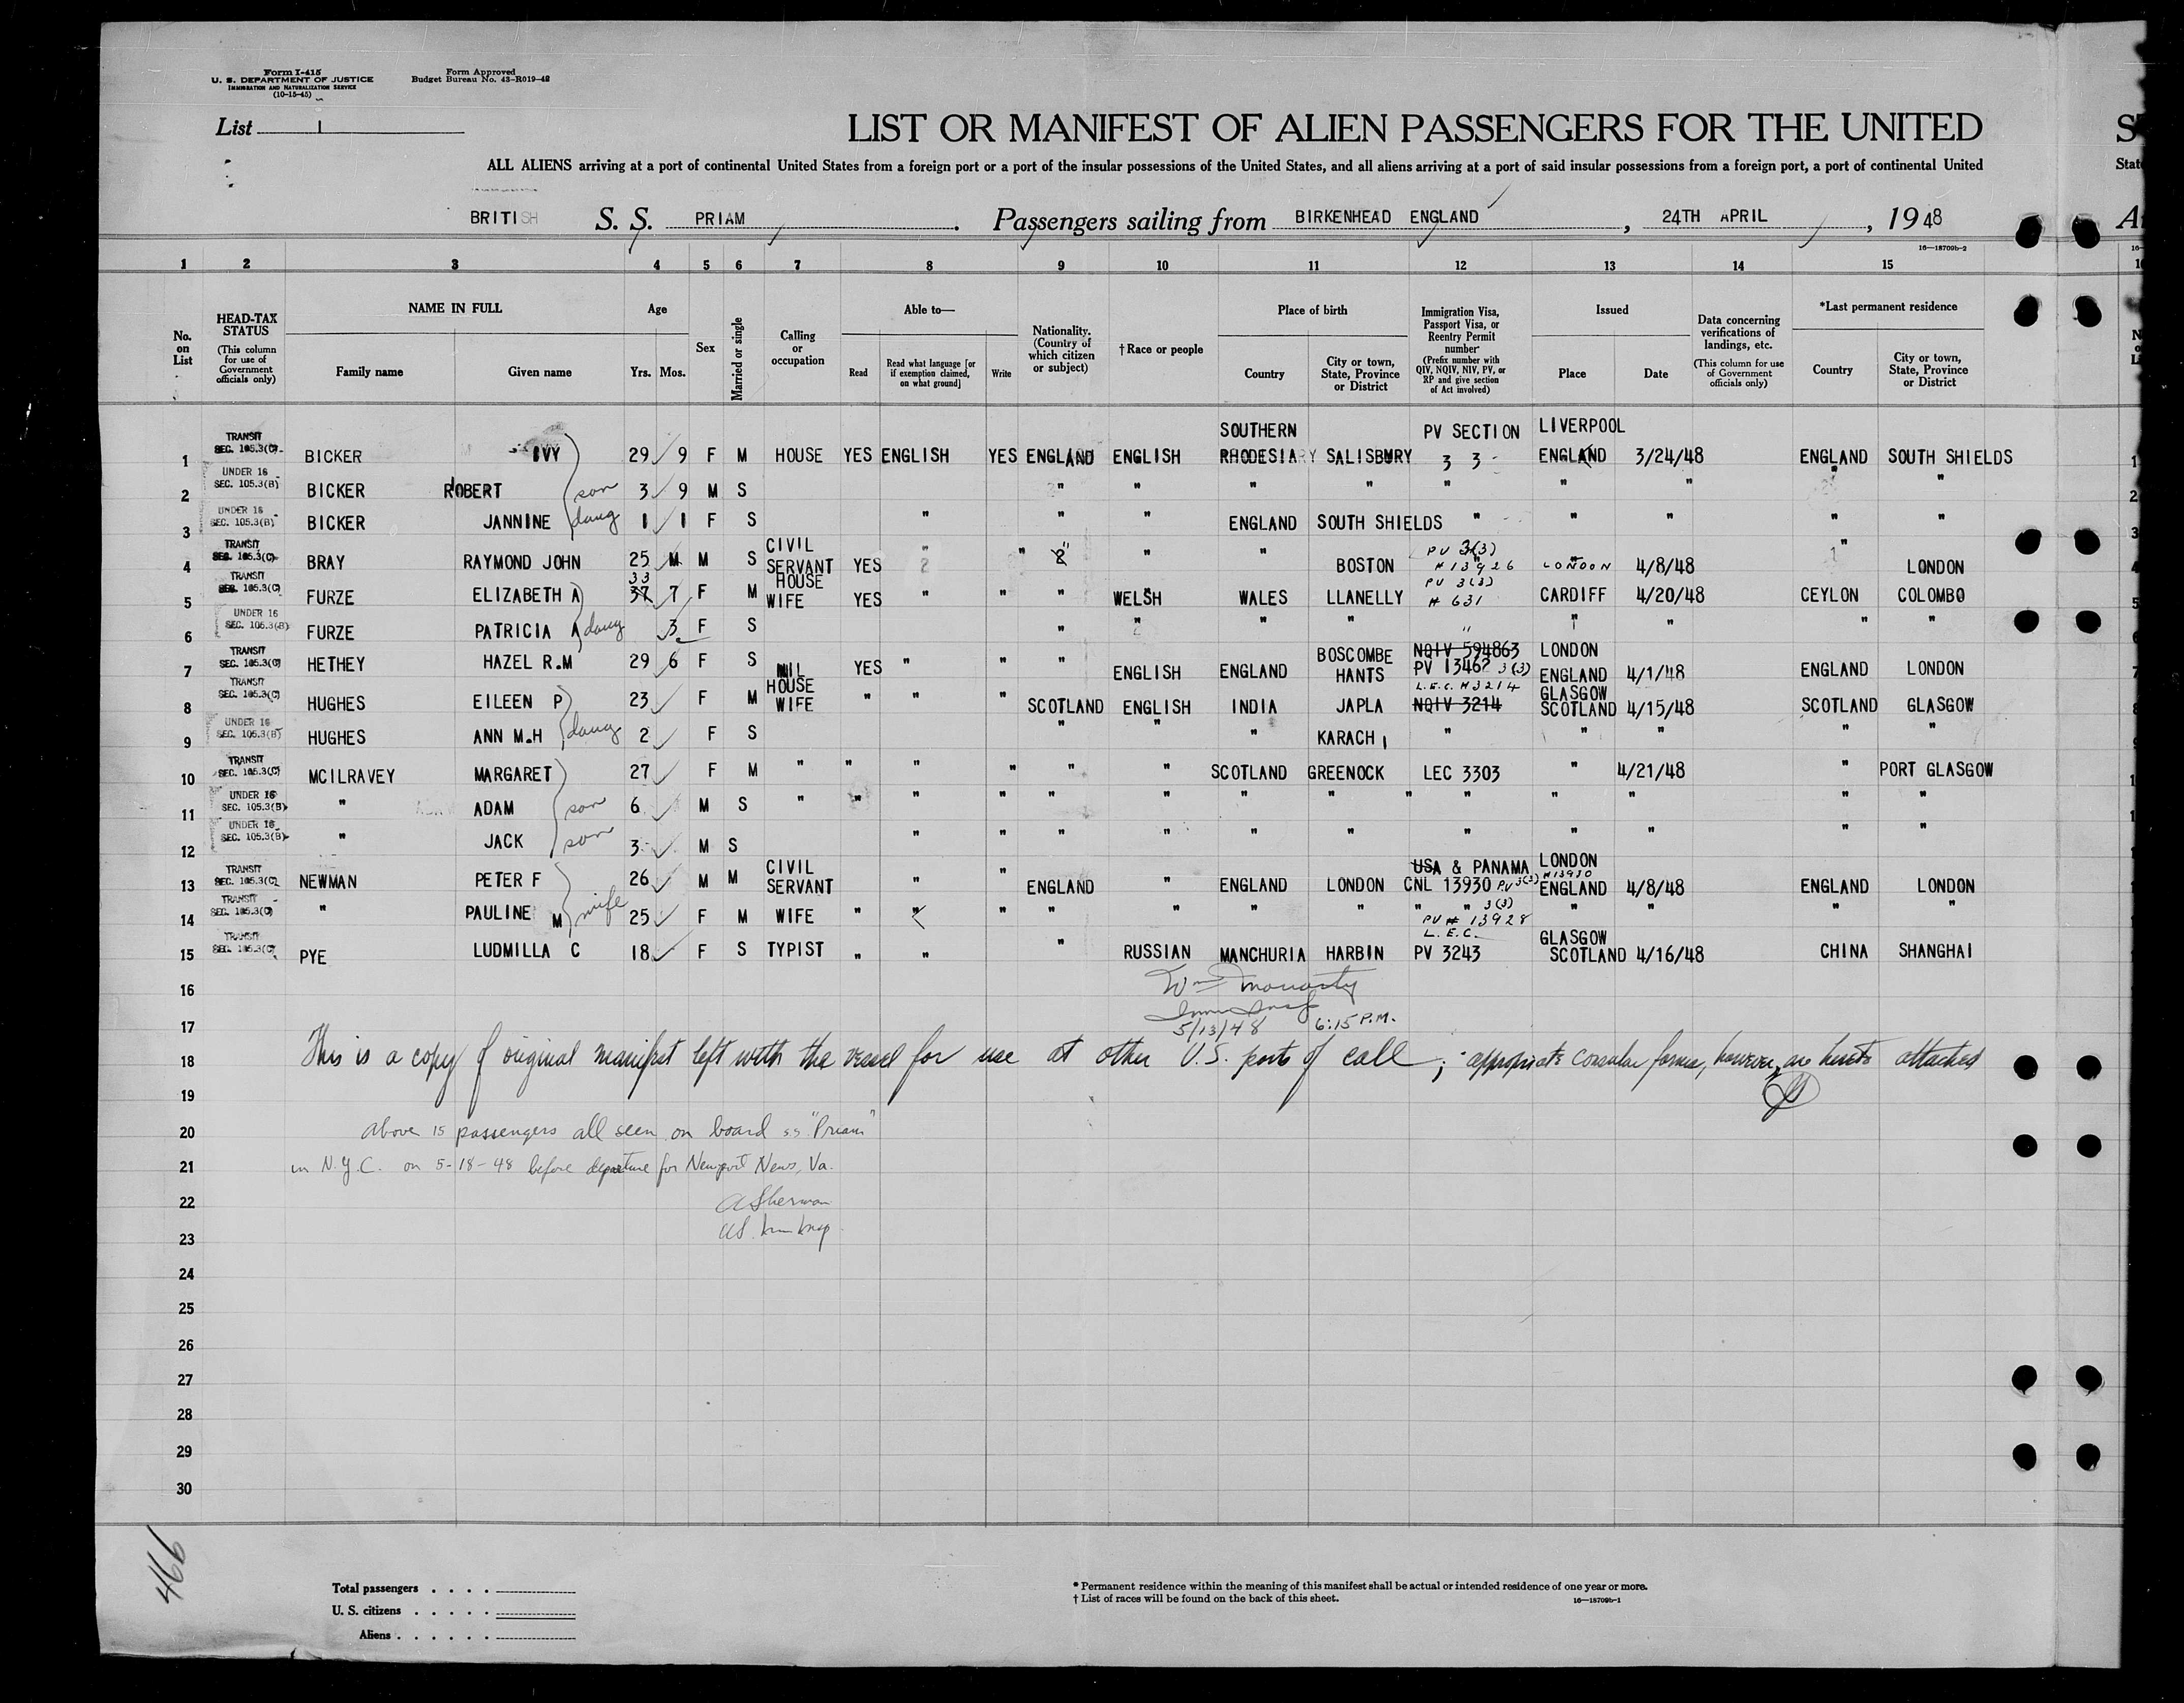 Form I-415
U. S. DEPARTMENT OF JUSTICE
IMMIGRATION AND NATURALIZATION SERVICE
(10-15-45)
Form Approved
Budget Bureau No. 43-R019-42
List 1
LIST OR MANIFEST OF ALIEN PASSENGERS FOR THE UNITED
ALL ALIENS arriving at a port of continental United States from a foreign port or a port of the insular possessions of the United States, and all aliens arriving at a port of said insular possessions from a foreign port, a port of continental United
BRITISH S. S. PRIAM. Passengers sailing from BIRKENHEAD ENGLAND, 24TH APRIL, 1948
16—18709b-2
1 2 3 4 5 6 7 8 9 10 11 12 13 14 15
No. on List
HEAD-TAX STATUS (This column for use of Government officials only)
NAME IN FULL
Family name Given name
Age
Yrs. Mos.
Sex
Married or single
Calling or occupation
Able to—
Read Read what language [or if exemption claimed, on what ground] Write
Nationality. (Country of which citizen or subject)
†Race or people
Place of birth
Country City or town, State, Province or District
Immigration Visa, Passport Visa, or Reentry Permit number (Prefix number with QIV, NQIV, NIV, PV, or RP and give section of Act involved)
Issued
Place Date
Data concerning verifications of landings, etc. (This column for use of Government officials only)
*Last permanent residence
Country City or town, State, Province or District
1 TRANSIT SEC. 105.3(C) BICKER IVY 29 9 F M HOUSE YES ENGLISH YES ENGLAND ENGLISH SOUTHERN RHODESIA SALISBURY PV SECTION 3 3 LIVERPOOL ENGLAND 3/24/48 ENGLAND SOUTH SHIELDS
2 UNDER 16 SEC. 105.3(B) BICKER ROBERT son 3 9 M S " " " " " " " " "
3 UNDER 16 SEC. 105.3(B) BICKER JANNINE daug 1 1 F S " " " ENGLAND SOUTH SHIELDS " " " " "
4 TRANSIT SEC. 105.3(C) BRAY RAYMOND JOHN 25 M M S CIVIL SERVANT YES " " " " " BOSTON PV 3(3) # 13926 LONDON 4/8/48 " LONDON
5 TRANSIT SEC. 105.3(C) FURZE ELIZABETH A 33 37 7 F M HOUSE WIFE YES " " " WELSH WALES LLANELLY PV 3(3) # 631 CARDIFF 4/20/48 CEYLON COLOMBO
6 UNDER 16 SEC. 105.3(B) FURZE PATRICIA A daug 3 F S " " " " " " " " "
7 TRANSIT SEC. 105.3(C) HETHEY HAZEL R.M 29 6 F S NIL YES " " " ENGLISH ENGLAND BOSCOMBE HANTS NQIV 594863 PV 13467 3(3) LONDON ENGLAND 4/1/48 ENGLAND LONDON
8 TRANSIT SEC. 105.3(C) HUGHES EILEEN P 23 F M HOUSE WIFE " " " SCOTLAND ENGLISH INDIA JAPLA L.E.C. #3214 NQIV 3214 GLASGOW SCOTLAND 4/15/48 SCOTLAND GLASGOW
9 UNDER 16 SEC. 105.3(B) HUGHES ANN M.H daug 2 F S " " " KARACHI " " " " "
10 TRANSIT SEC. 105.3(C) MCILRAVEY MARGARET 27 F M " " " " " " SCOTLAND GREENOCK LEC 3303 " 4/21/48 " PORT GLASGOW
11 UNDER 16 SEC. 105.3(B) " ADAM son 6 M S " " " " " " " " " " " " " "
12 UNDER 16 SEC. 105.3(B) " JACK son 3 M S " " " " " " " " " " "
13 TRANSIT SEC. 105.3(C) NEWMAN PETER F 26 M M CIVIL SERVANT " " ENGLAND " ENGLAND LONDON USA & PANAMA CNL 13930 PV 3(3) LONDON #13930 ENGLAND 4/8/48 ENGLAND LONDON
14 TRANSIT SEC. 105.3(C) " PAULINE M wife 25 F M WIFE " " " " " " " " " 3(3) PV # 13928 " " " "
15 TRANSIT SEC. 105.3(C) PYE LUDMILLA C 18 F S TYPIST " " " RUSSIAN MANCHURIA HARBIN L.E.C. PV 3243 GLASGOW SCOTLAND 4/16/48 CHINA SHANGHAI
16 Wm Moriarty
17 5/13/48 6:15 P.M.
18 This is a copy of original manifest left with the vessel for use at other U.S. ports of call; appropriate consular forms, however, are hereto attached
19
20 Above 15 passengers all seen on board ss "Priam"
21 in N.Y.C. on 5-18-48 before departure for Newport News, Va.
22 A Sherman
23 US Imm Insp
24
25
26
27
28
29
30
466
Total passengers
U. S. citizens
Aliens
* Permanent residence within the meaning of this manifest shall be actual or intended residence of one year or more.
† List of races will be found on the back of this sheet.
16—18709b-1